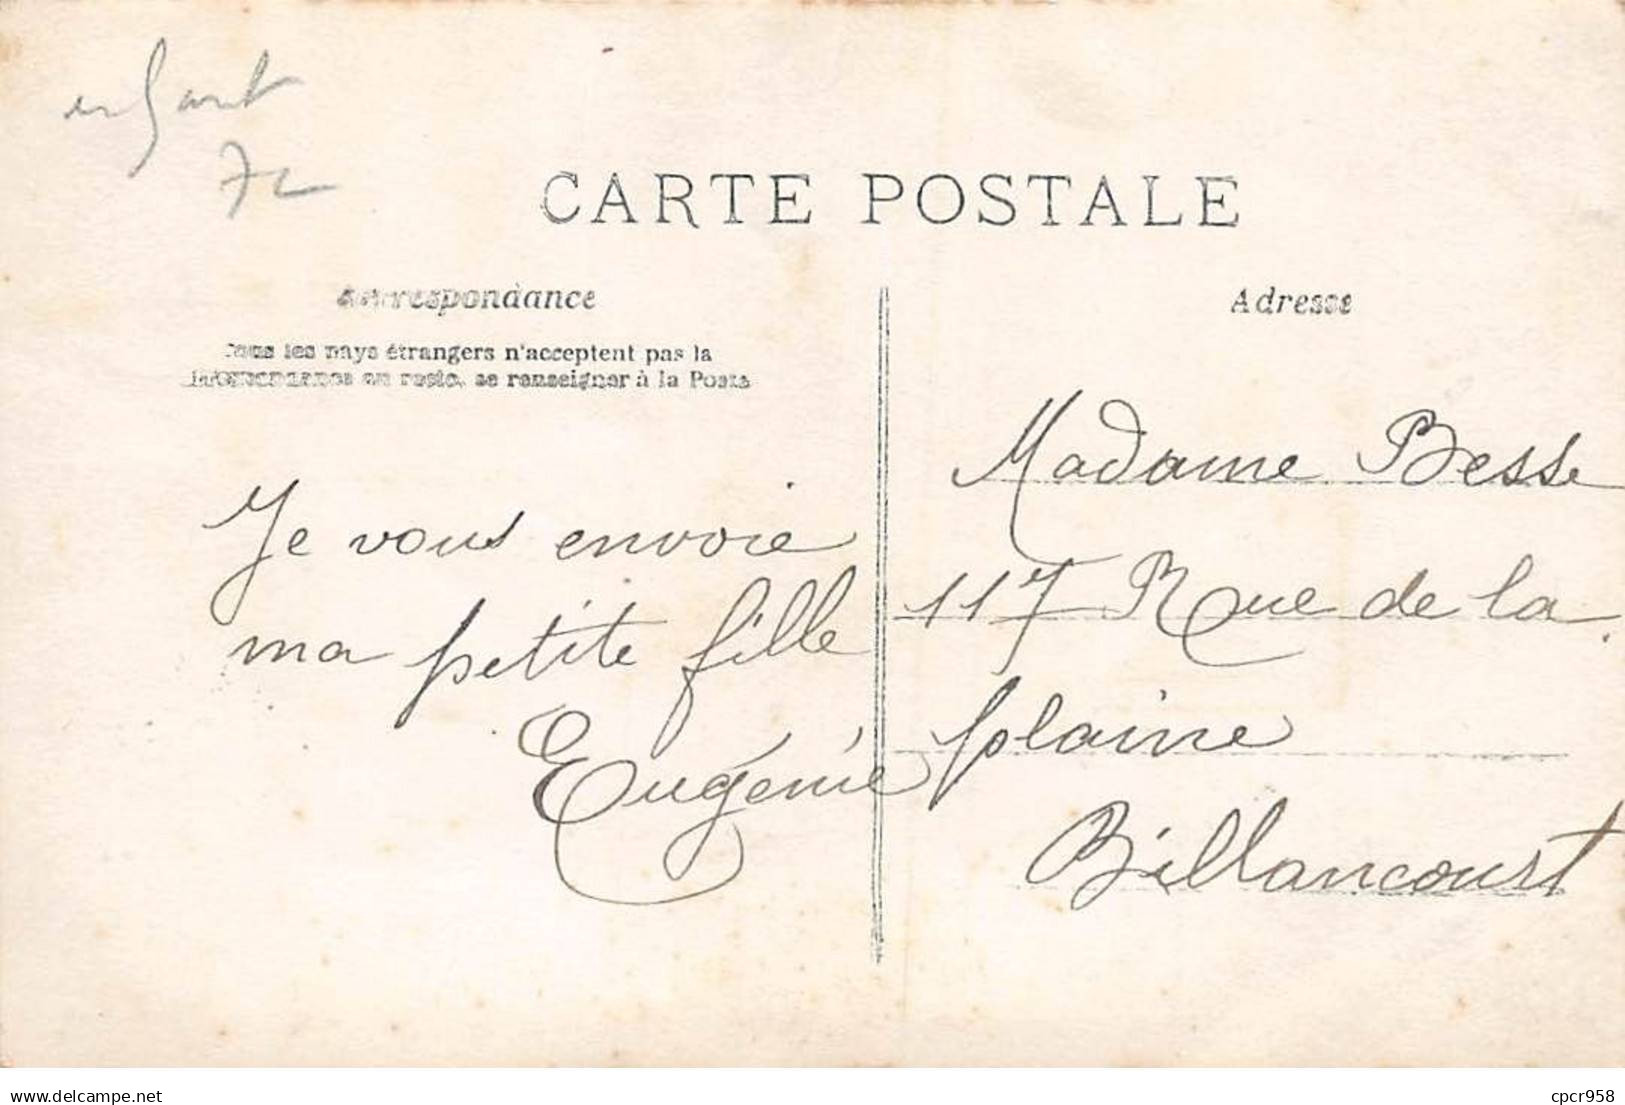 enfant
CARTE POSTALE
Correspondance
Tous les pays étrangers n'acceptent pas la
Correspondance au recto, se renseigner à la Poste
Je vous envoie
ma petite fille
Eugénie
Adresse
Madame Besse
117 Rue de la
plaine
Billancourt
www.delcampe.net
cpcr958